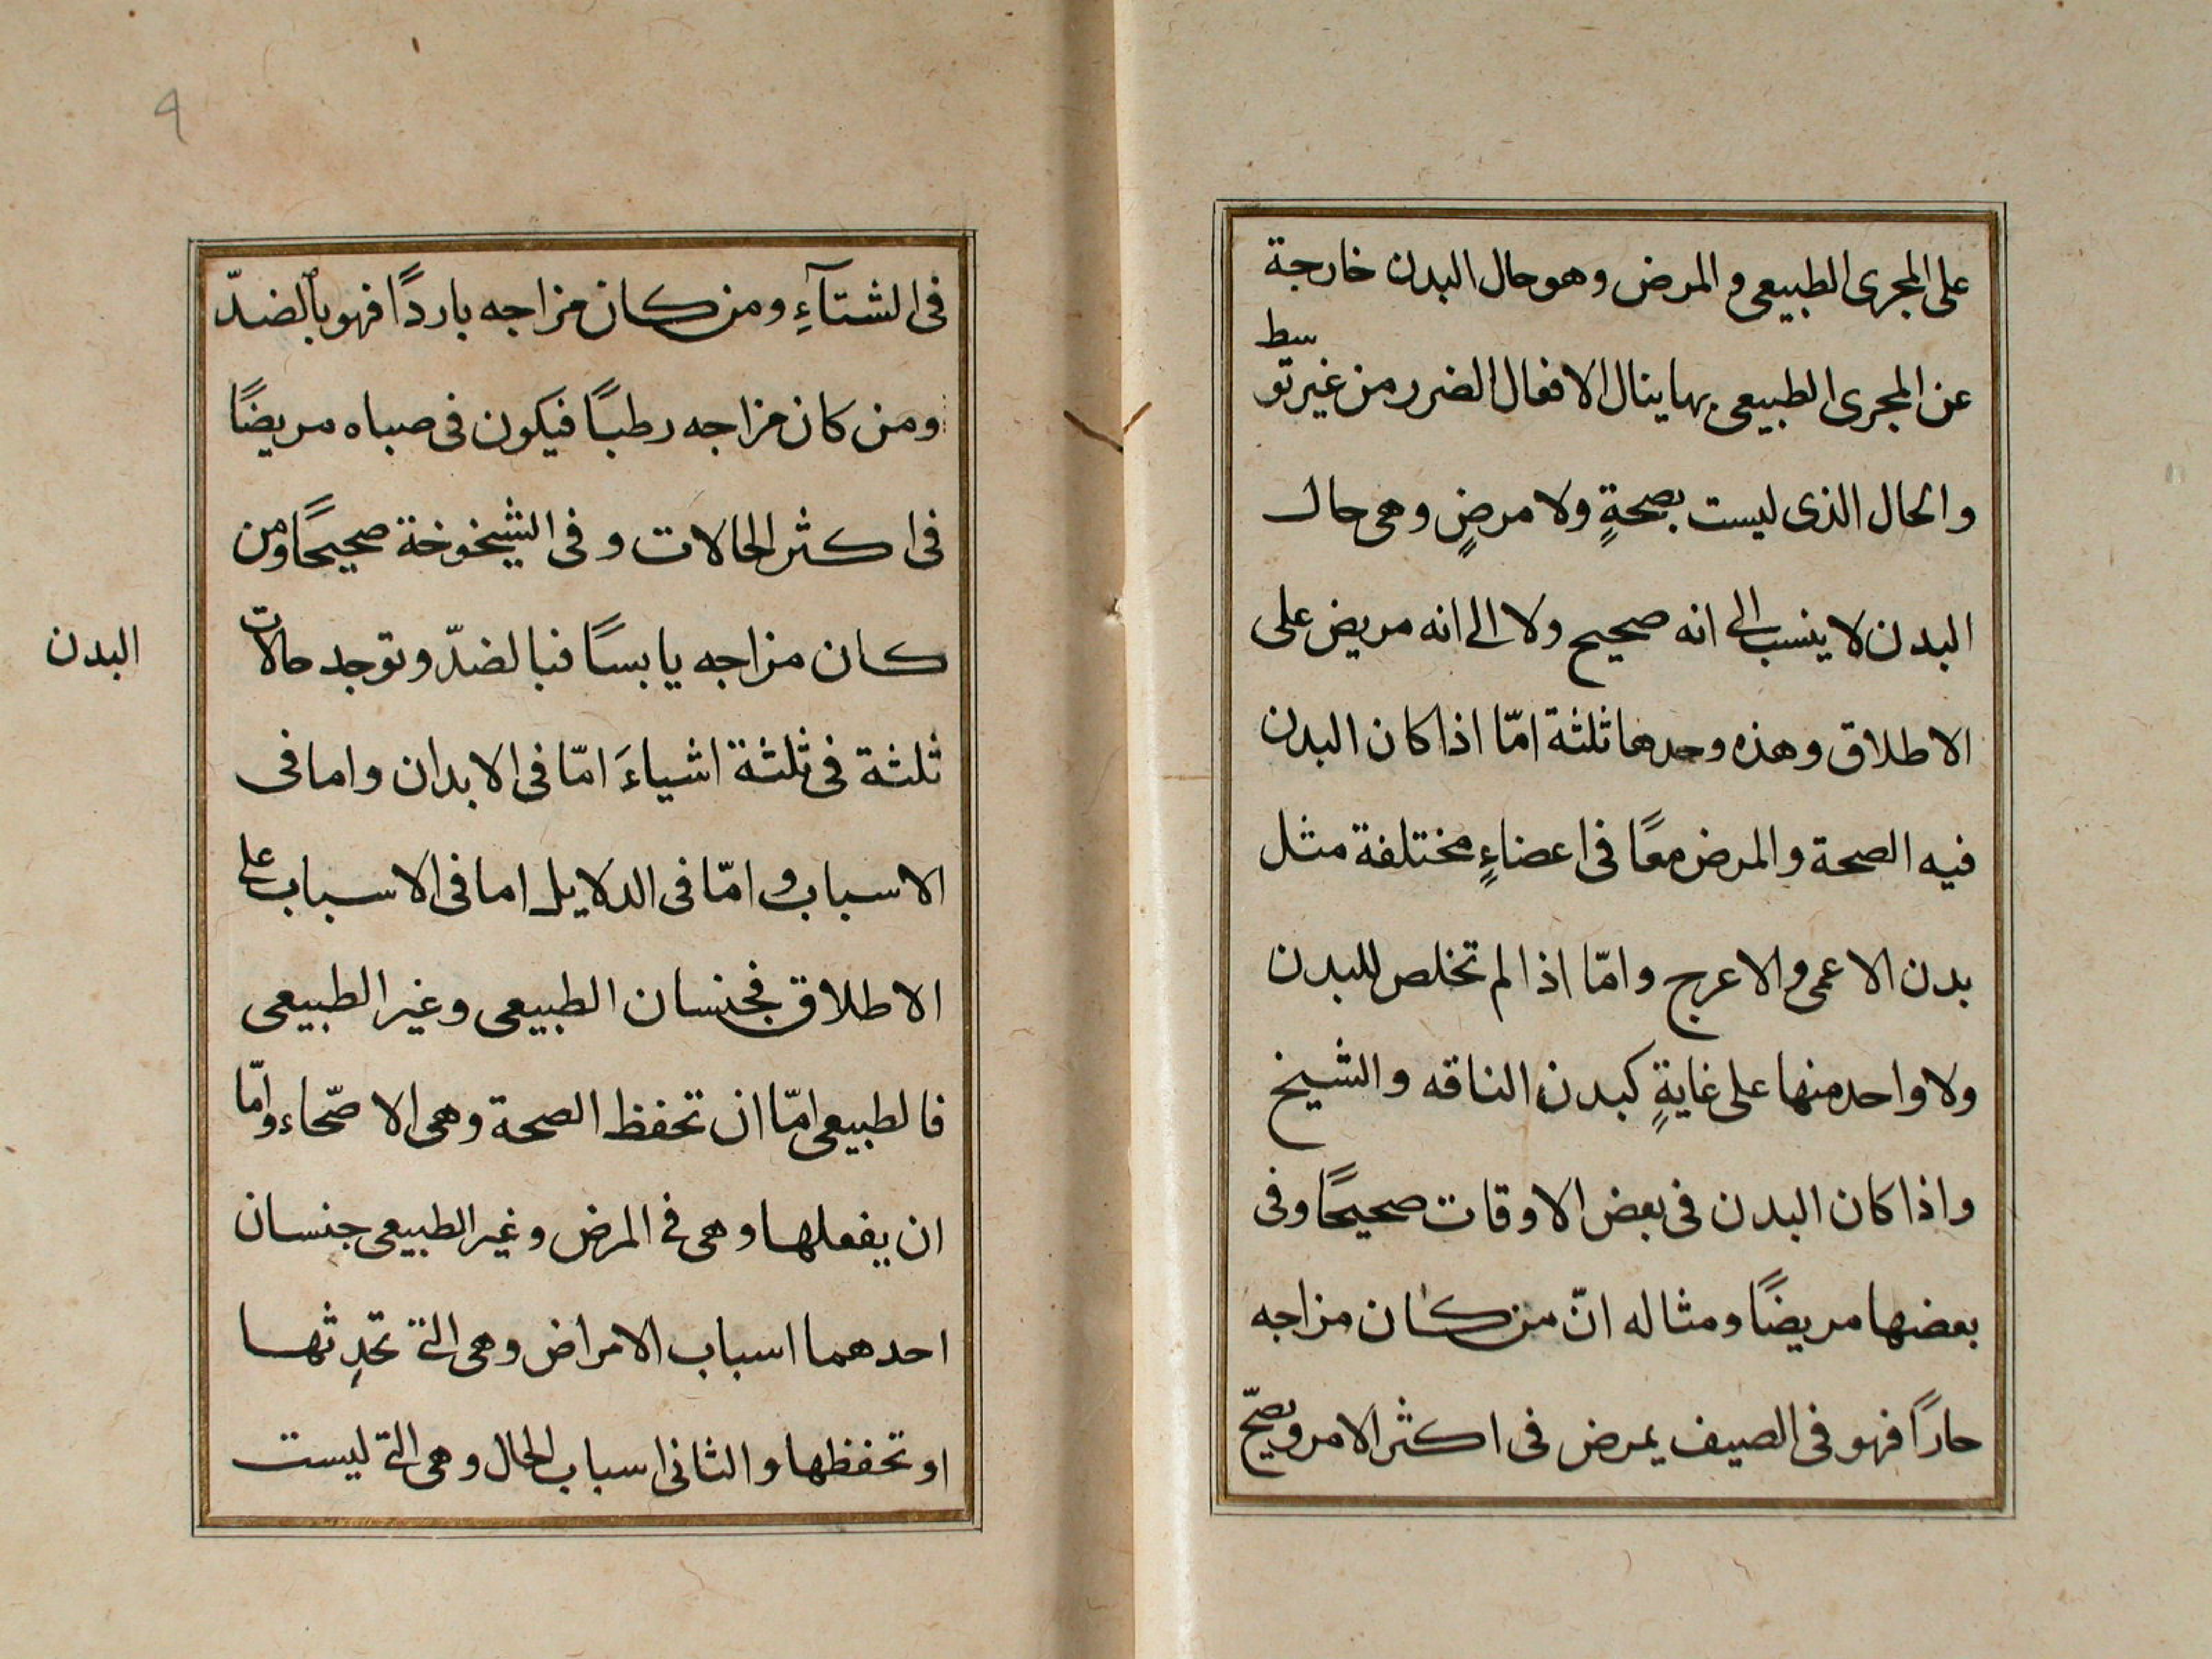 على المجرى الطبيعى و المرض وهو حال البدن خارجة
عن المجرى الطبيعى بها ينال الافعال الضرر من غير توسط
والحال الذى ليست بصحةٍ ولا مرضٍ وهى حال
البدن لا ينسب الى انه صحيح ولا الى انه مريض على
الاطلاق وهذه وحدها ثلثة امّا اذا كان البدن
فيه الصحة والمرض معًا فى اعضاءٍ مختلفة مثل
بدن الاعمى والاعرج وامّا اذا لم تخلص للبدن
ولا واحد منها على غايةٍ كبدن الناقه والشيخ
واذا كان البدن فى بعض الاوقات صحيحًا وفى
بعضها مريضًا ومثاله انّ من كان مزاجه
حارًا فهو فى الصيف يمرض فى اكثر الامر ويصحّ
فى الشتآءِ ومن كان مزاجه باردًا فهو بالضدّ
ومن كان مزاجه رطبًا فيكون فى صباه مريضًا
فى اكثر الحالات وفى الشيخوخة صحيحًا ومن
كان مزاجه يابسًا فبالضدّ وتوجد حالات
البدن
ثلثة فى ثلثة اشياءَ امّا فى الابدان واما فى
الاسباب وامّا فى الدلايل اما فى الاسباب على
الاطلاق فجنسان الطبيعى وغير الطبيعى
فالطبيعى امّا ان تحفظ الصحة وهى الاصحّاء وامّا
ان يفعلها وهى فى المرض وغير الطبيعى جنسان
احدهما اسباب الامراض وهى التى تحدِثها
او تحفظها والثانى اسباب الحال وهى التى ليست
٩